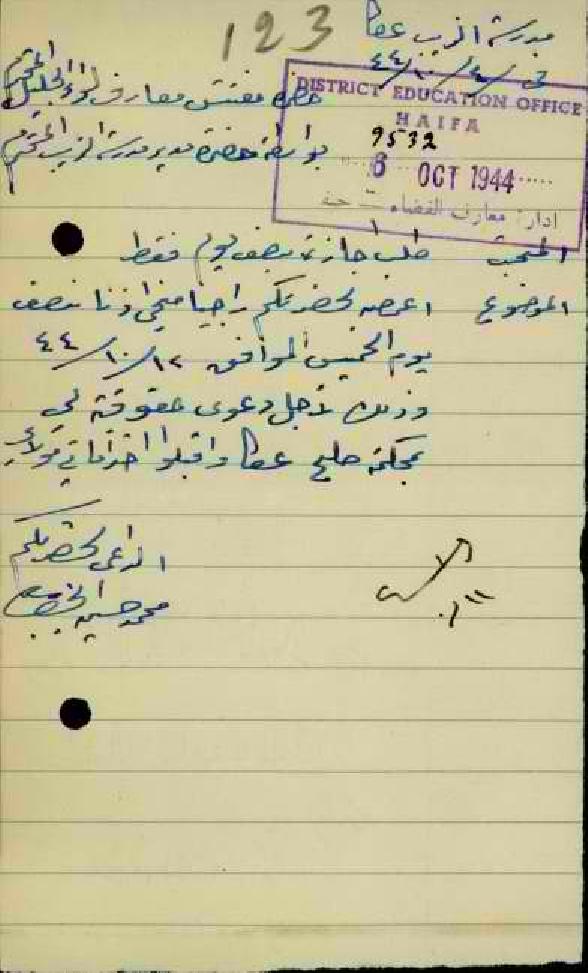 123
مدرسة الزيب عكا
في ٤/١٠/٤٤
حضرة مفتش معارف لواء الجليل المحترم
DISTRICT EDUCATION OFFICE
HAIFA
9532
6 OCT 1944
ادارة معارف القضاء حيفا
بواسطة حضرة مدير مدرسة الزيب المحترم
طلب اجازة نصف يوم فقط
الموضوع اعرض لحضرتكم راجيا منحي اذنا نصف
يوم الخميس الموافق ١٢/١٠/٤٤
وذلك لأجل دعوى حقوقة لي
بمحكمة صلح عكا واقبلوا احتراماتي مولاي
الداعي لحضرتكم
محمد حسين